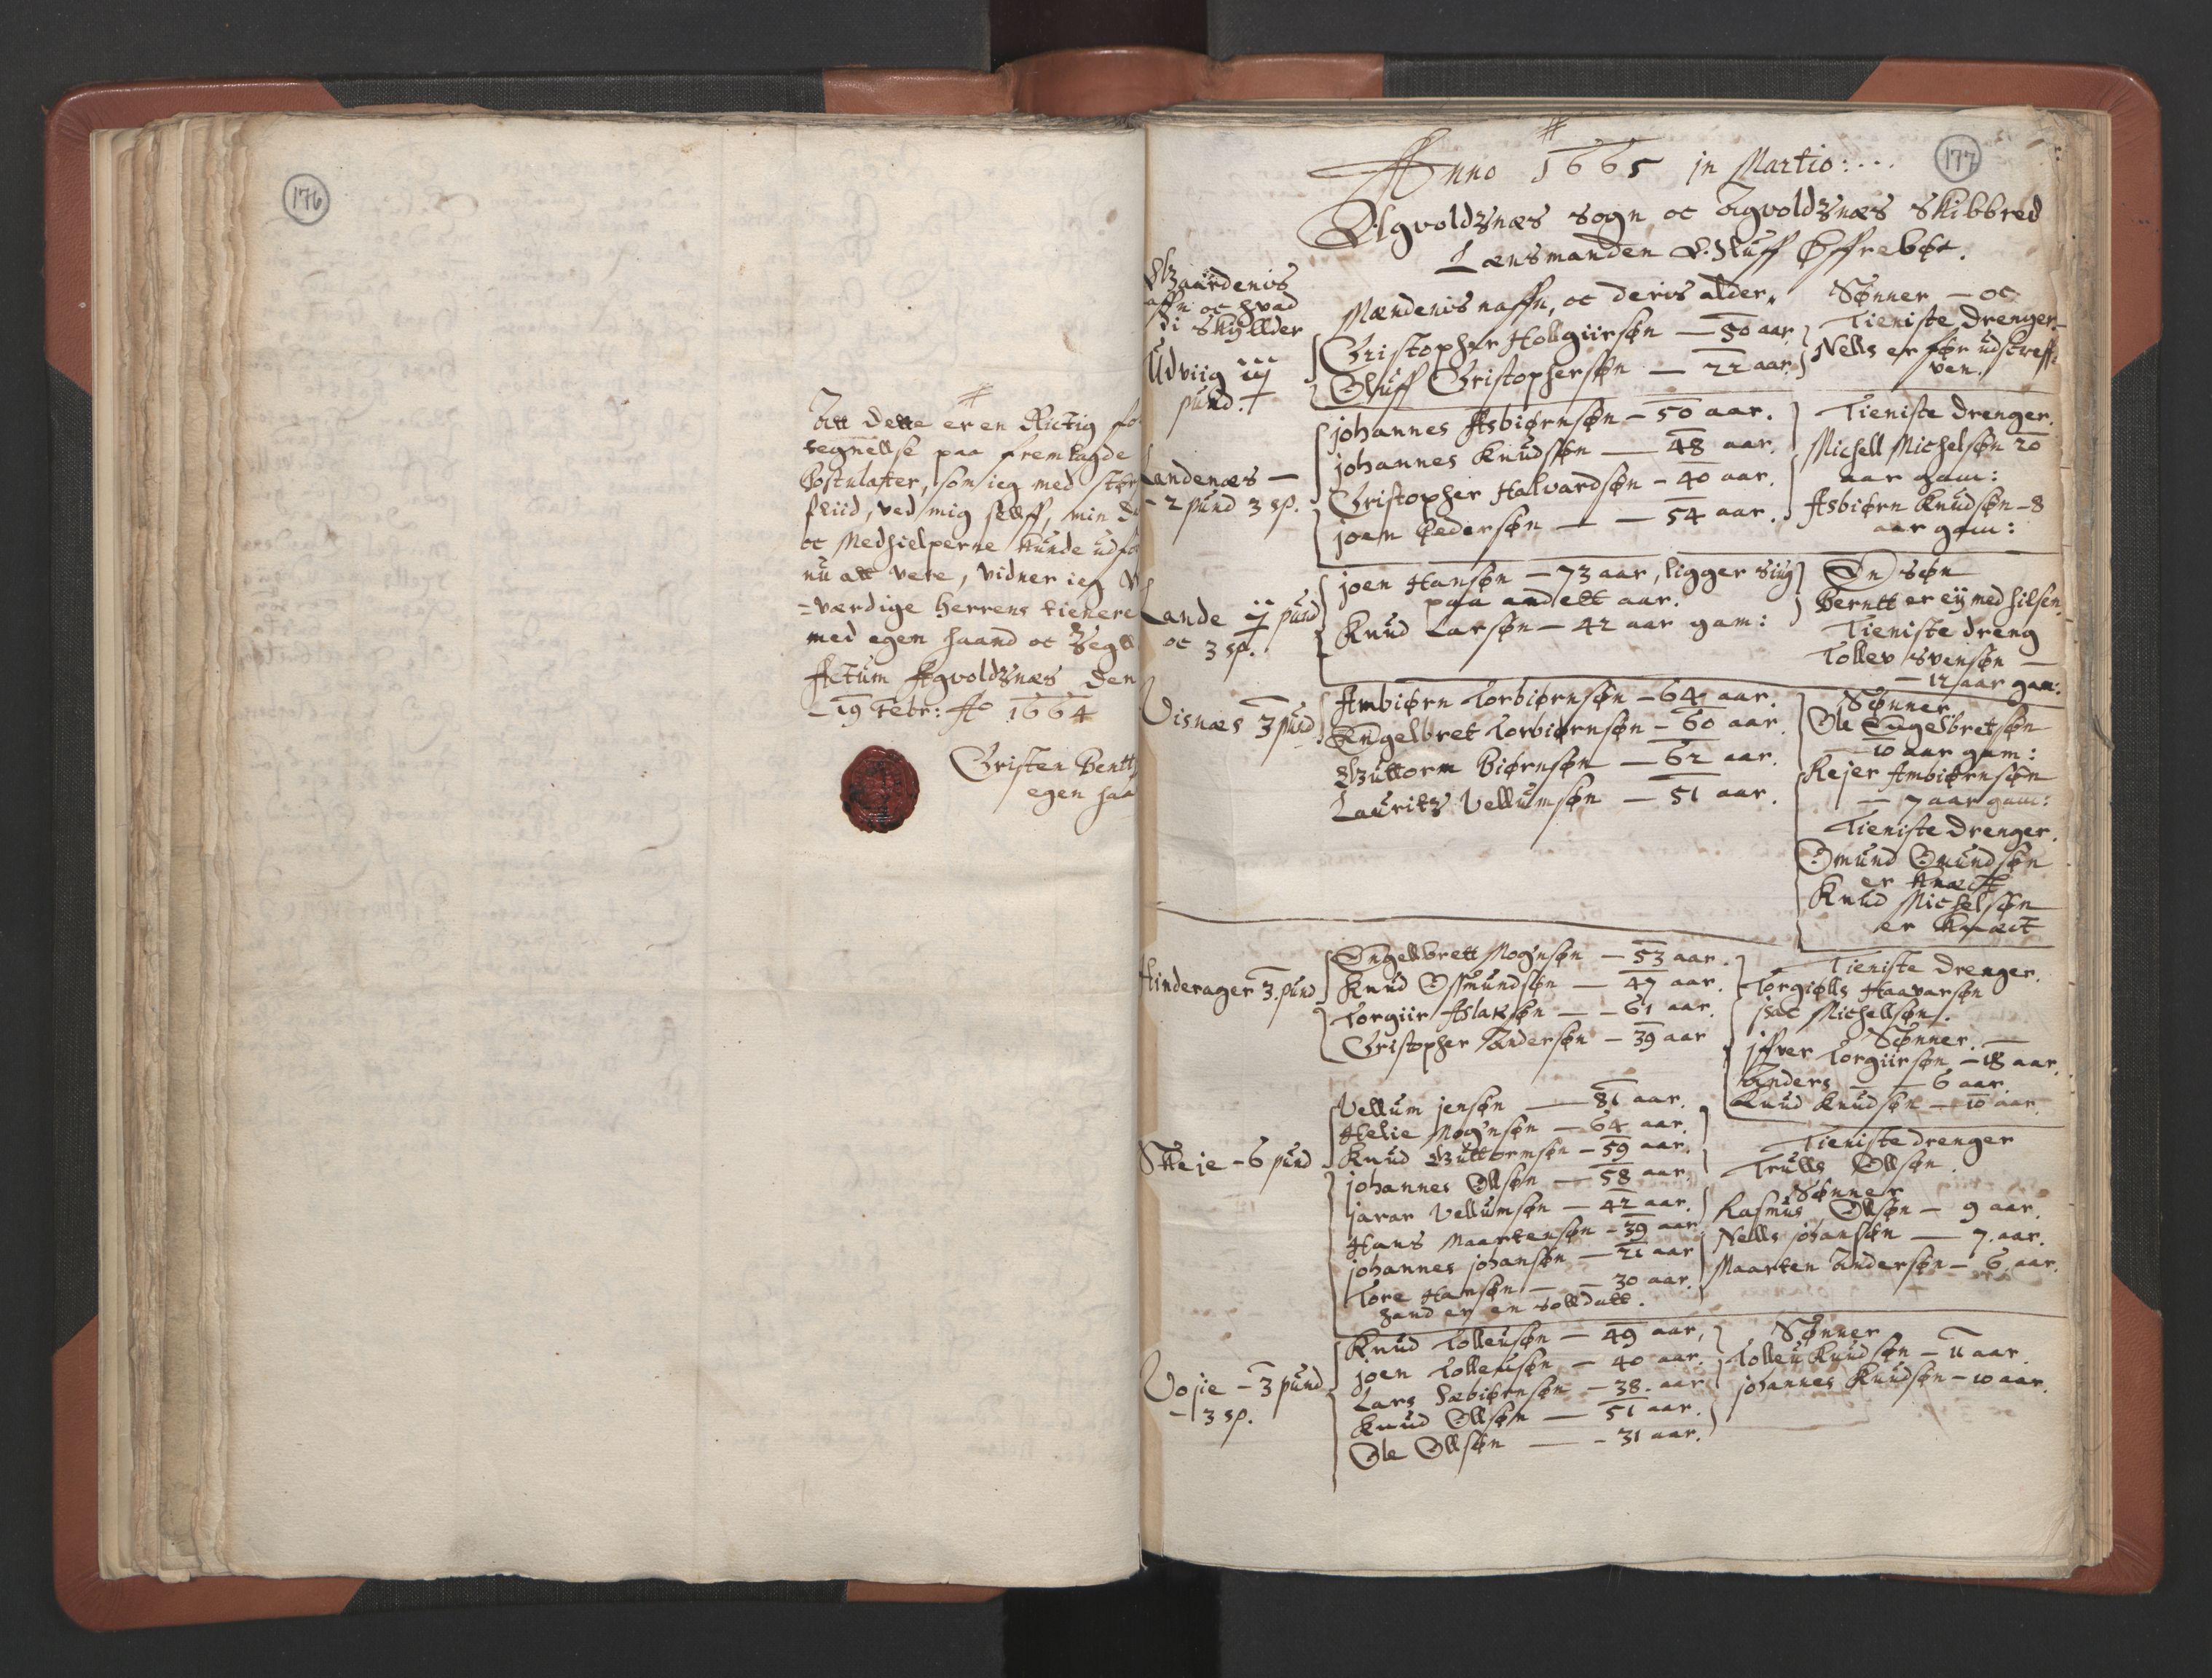 176
Att dette er en Rictig
regnellse paa fremlagde
Postulater, som ieg med
fliid, ved mig sellff, min
oc Medhielperne kunde
nu att vere, vidner ieg
=værdige Herrens tienere
med egen haand oc Zegl
Actum Agvoldznæs den
19 Febr: Ao 1664
Christen Bentt
egen haa
177
Anno 1665 in Martio:...
Agvoldznæs sogn oc Agvoldznæs Skibbred
Lænsmanden Oluff Øffrebøe.
Gaardenis
naffn oc hvad
di Skyllder
Mændenis naffn, oc deris alder,
Sønner — oc
Tieniste drenger
Udviig iij
pund.
Christopher Hollgiirsøn — 50 aar
Oluff Christophersøn — 22 aar
Nells er før udskreff-
ven.
Landenæs —
- 2 pund 3 sp.
johannes Asbiørnsøn — 50 aar.
johannes Knudsøn — 48 aar.
Christopher Halvardsøn — 40 aar.
joen Pedersøn — — 54 aar.
Tieniste drenger.
Michell Michelsøn 20
aar gam:
Asbiørn Knudsøn — 8
aar gam:
Lande ij pund
oc 3 sp.
joen Hansøn — 73 aar, ligger siug
paa andett aar.
Knud Larsøn — 42 aar gam:
En søn
Berntt er eij med hilsen
Tieniste dreng
Tollev Svensøn —
— 12 aar gam:
Visnæs 3 pund
Ambiørn Torbiørnsøn — 64 aar.
Engelbret Torbiørnsøn — 60 aar.
Guttorm Biørnsøn — 62 aar.
Lauritz Vellumsøn — 51 aar.
Sønner
Ole Engelbretsøn
— 10 aar gam:
Rejer Ambiørnsøn
— 7 aar gam:
Tieniste drenger.
Omund Omundsøn
er Knæct
Knud Michelsøn
er Knæct
Hinderager 3. pund
Engellbrett Mognsøn — 53 aar.
Knud Ossmundsøn — 47 aar.
Torgiir Aslaksøn — — 61 aar.
Christopher Andersøn — 39 aar
Tieniste drenger.
Torgiølls Haavarsøn
jsac Michellsøn.
Sønner.
jffver Torgiirsøn — 18 aar.
Anders — 6 aar.
Knud Knudsøn — 10 aar.
Skeje — 6 pund
Vellum jensøn — 81 aar.
Helie Mognsøn — 64 aar.
Knud Guttormsøn — 59 aar.
johannes Ollsøn — 58 aar.
jarar Vellumsøn — 42 aar.
Hans Maartensøn — 39 aar
johannes johansøn — 21 aar
Tore Hansøn — — 30 aar.
hand er en solldatt.
Tieniste drenger
Trulls Ollsøn.
Sønner
Rasmus Ollsøn — 9 aar.
Nells johansøn — 7. aar.
Maarten Andersøn — 6. aar.
Vojie — 3 pund
— 3 sp.
Knud Tolleusøn — 49 aar,
joen Tolleusøn — 40 aar.
Lars Sæbiørnsøn — 38. aar
Knud Ollsøn — 51 aar.
Ole Ollsøn — — 31 aar.
Sønner
Tolleu Knudsøn — 11 aar.
johannes Knudsøn — 10 aar.